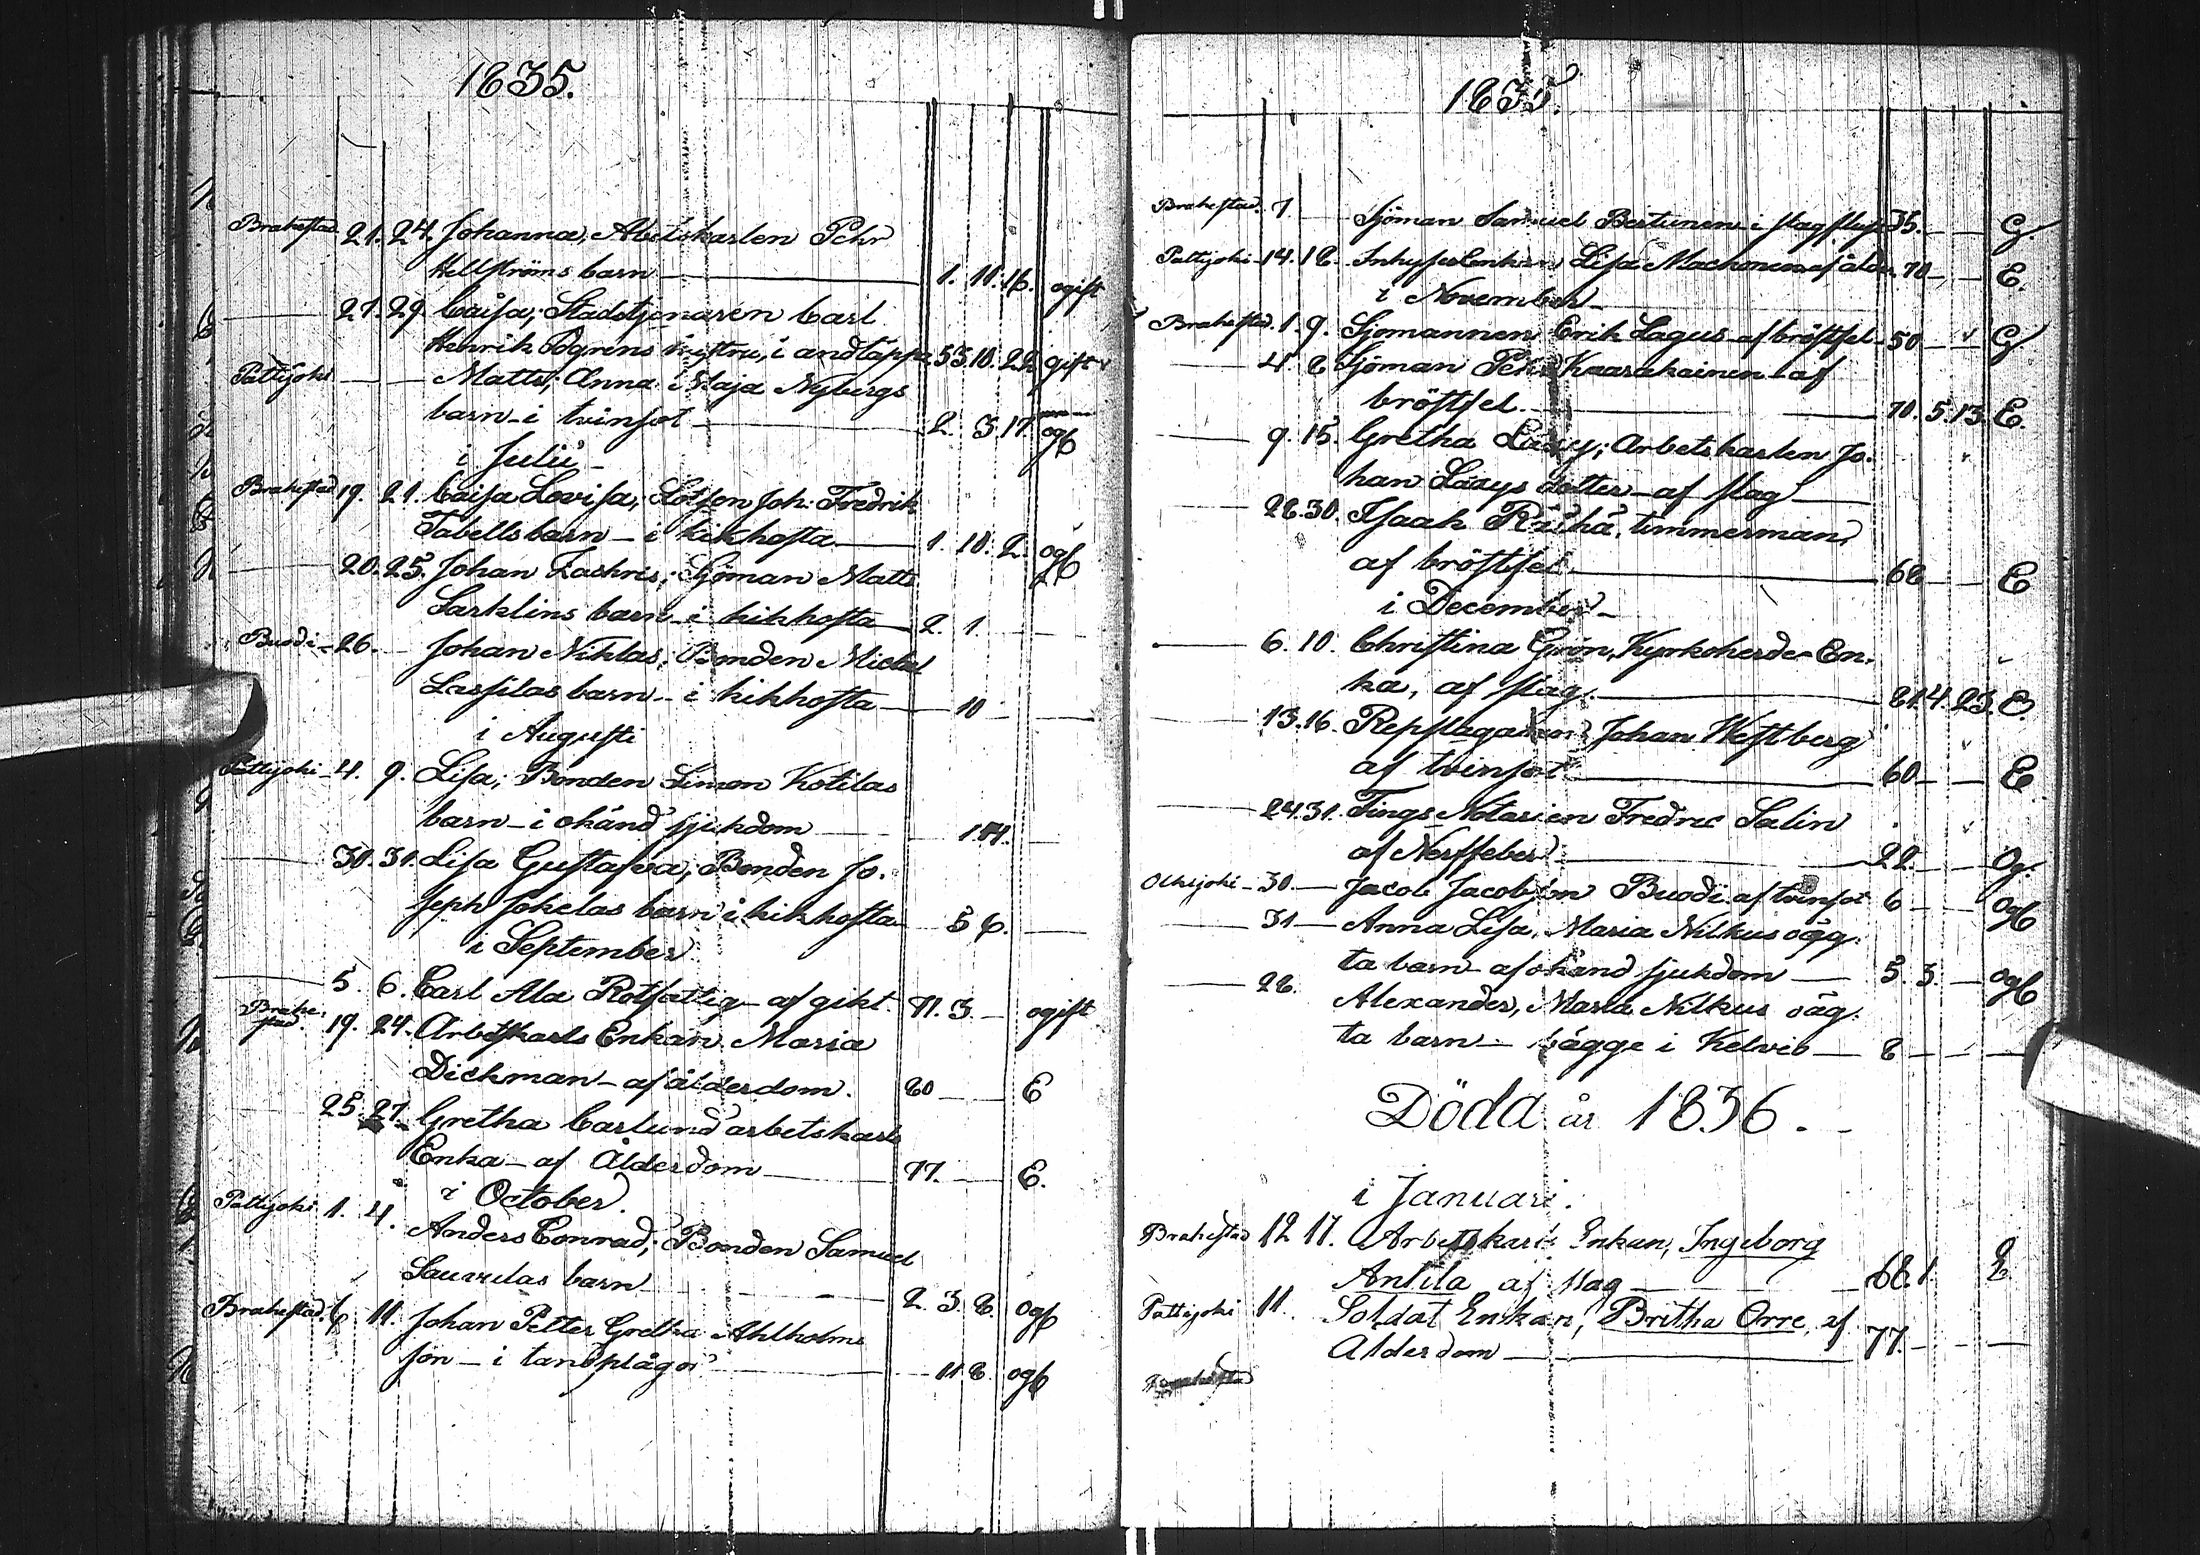 1835.
Brahestad 21. 24. Johanna, Abetskarlen Pehr
Hellströms barn 1. 11. 16. ogift
21. 29. Caisa; Stadstjenaren Carl
Henrik hustru, i andtäppa 53 10. 22 gift
Pattijoki Matts; Anna Maja Nybergs
barn i tvinsot 2. 3. 17. ogb
i Julii
Brahestad 19. 21. Caisa Lovisa; Lotsen Joh: Fredrik
Tabells barn i kikhosta 1. 10. 2. ogb
20. 25. Johan Zachris; Sjöman Matts
Sarklins barn i kikhosta 2. 1.
Buodi 26. Johan Niklas; Bonden Mickel
Lassilas barn i kikhosta 10
i Augusti
Pattijoki 4. 9. Lisa; Bonden Simon Kotilas
barn i okänd sjukdom
30. 31. Lisa Gustafva; Bonden Jo-
seph Jokelas barn i kikhosta 5 6.
i September
5. 6. Carl Ala Rotfattig af gikt. 71. 3. ogift
Brahe-
stad. 19. 24. Arbetskarls Enkan Maria
Dickman af ålderdom. 80 E
25. 27. Gretha Carlund arbetskarls
Enka af Ålderdom 77. E.
i October.
Pattijoki 1. 4. Anders Conrad; Bonden Samuel
Sauvulas barn 2. 3. 8. ogb
Brahestad. 6. 11. Johan Petter Gretha Ahlholms
son i tandplågor 11 8. ogb
1835.
Brahestad. 7. Sjöman Samuel i slagfluss 35. G.
Pattijoki 14. 18. Inhyses Enkan Lisa af ålder 70 E.
i November
Brahestad. 1. 9. Sjömannen Erik Lagus af bröstfel 50 G
4. 8 Sjöman Pehr Kaarakainen af
bröstfel. 70. 5. 13. E.
9. 15. Gretha Laxy; Arbetskarlen Jo-
han Laxys dotter af slag
28. 30. Isaak Räihä, timmerman
af bröstfel. 68 E
i December
6. 10. Christina Grön, Kyrkoherde En-
ka, af slag. 81. 4. 23. E.
13. 16. Repslagaren Johan Westberg
af tvinsot 60 E
24. 31. Tings Notarien Fredric Salin
af Nerffeber 22. Og.
Olkijoki 30. Jacob Jacobsson Buodi af tvinsot 6 Ogb
31 Anna Lisa, Maria Nilkus oäg-
ta barn af okänd sjukdom 5. 3. ogb
28. Alexander, Maria Nilkus oäg-
ta barn bägge i Kelviå 8
Döda år 1836.
i Januari.
Brahestad 12 17. Arbetskarls Enkan, Ingeborg
Antila af slag 68. 1. E
Pattijoki 11. Soldat Enkan, Britha Orre, af
Ålderdom 77.